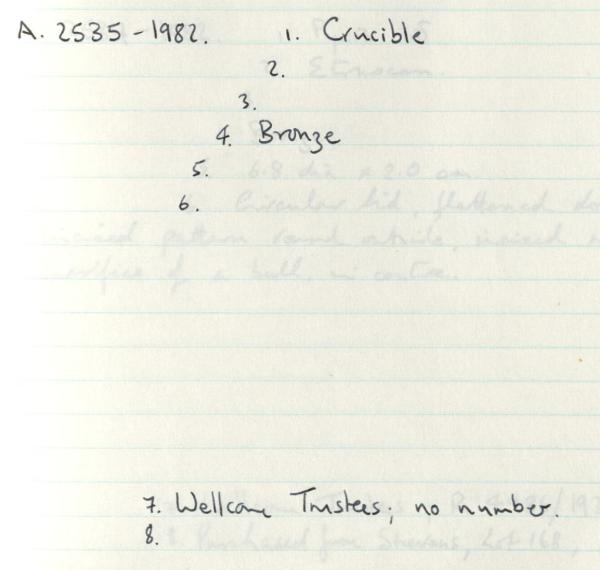 A. 2535-1982. 1. Crucible
2.
3.
4. Bronze
5.
6.
7. Wellcome Trustees; no number.
8.